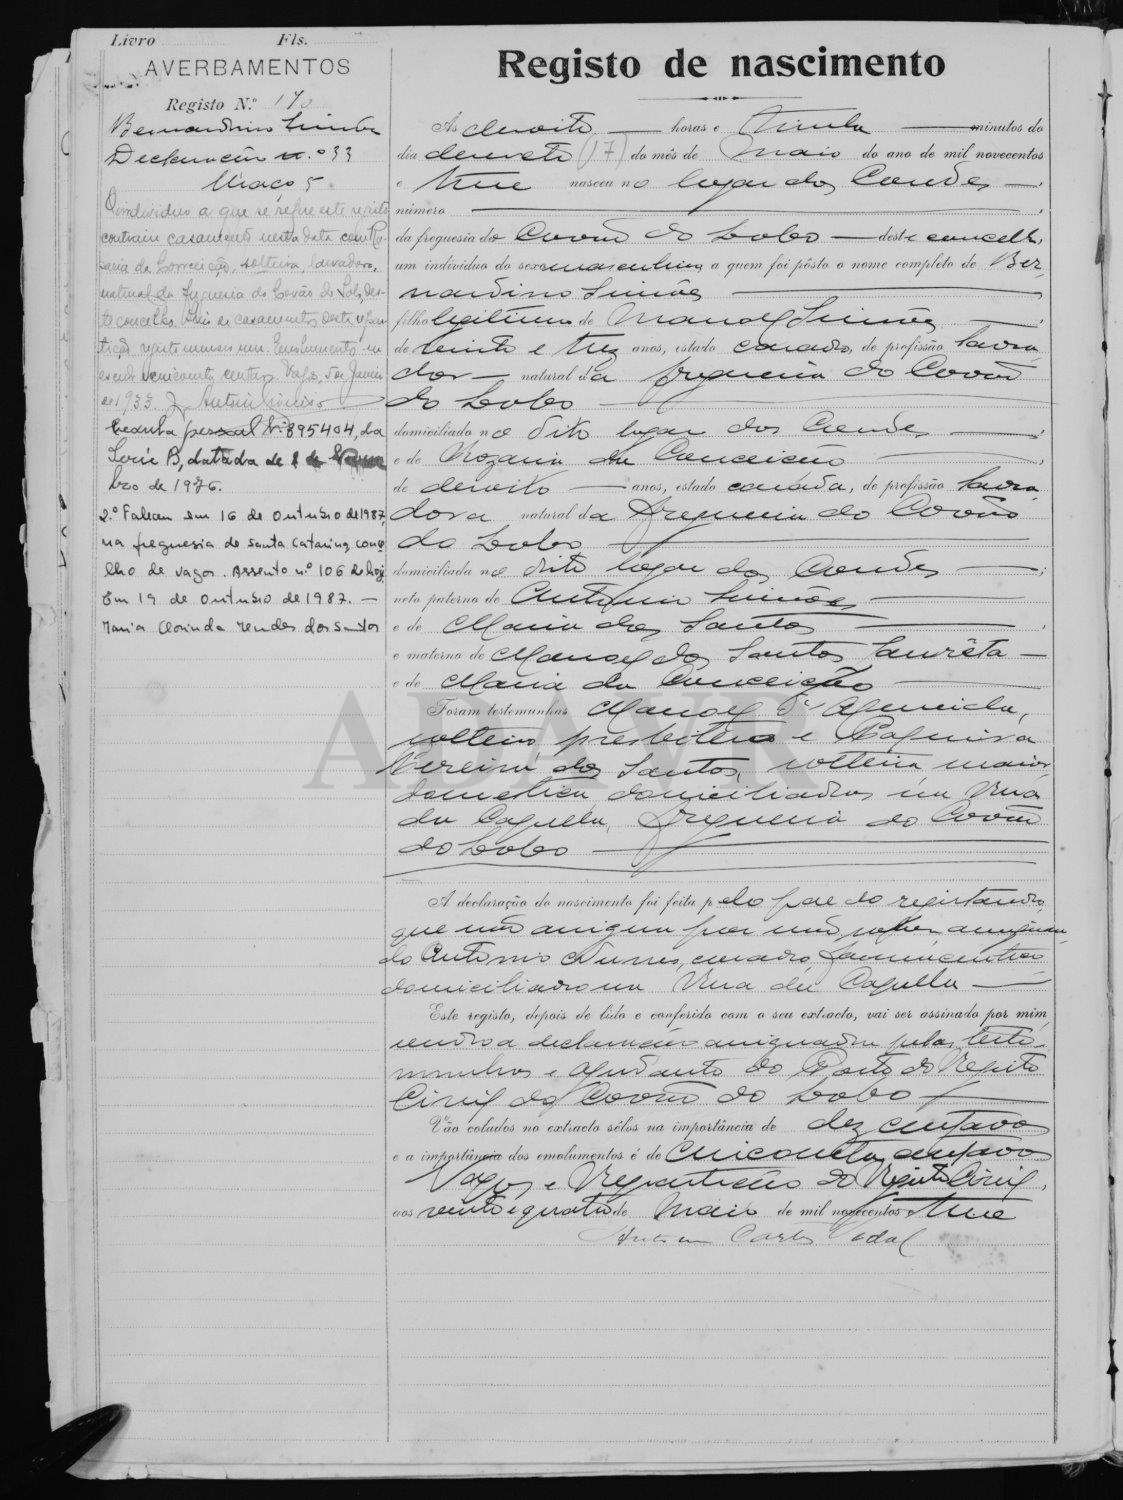 Livro Fls.
AVERBAMENTOS
Registo N.º 170
Bernardino Simões
Declaração n.º 33
Maço 5
O individuo a que se refere este registo
contraiu casamento nesta data com Ro-
saria da Conceição, solteira, lavradora,
natural da freguesia do Covão do Lobo, des-
te concelho. Livro de casamentos desta repar-
tição, registo numero um. Emolumento
cincoenta centavos. Vagos, 5 de Janeiro
de 1933.
Cedula pessoal N.º 895404, da
Serie B, datada de 8 de
bro de 1976.
2.º Faleceu em 16 de Outubro de 1987,
na freguesia de Santa Catarina, conce
lho de Vagos. Assento n.º 106 de hoje
Em 19 de Outubro de 1987. —
Maria Clorinda Mendes dos Santos
Registo de nascimento
Ás dezoito — horas e trinta — minutos do
dia dezesete (17) do mês de Maio do ano de mil novecentos
e treze nasceu no logar dos Condes —,
número —,
da freguesia do Covão do Lobo — deste concelho,
um individuo do sexo masculino a quem foi pôsto o nome completo de Ber-
nardino Simões —
filho legitimo de Manoel Simões —,
de vinte e trez anos, estado casado, de profissão lavra-
dor — natural da freguesia do Covão
do Lobo —
domiciliado no dito logar dos Condes —,
e de Rozaria da Conceição —,
de dezoito — anos, estado casada, de profissão lavra-
dora natural da freguesia do Covão
do Lobo —
domiciliada no dito logar dos Condes —;
neto paterno de Antonio Simões —
e de Maria dos Santos —,
e materno de Manoel dos Santos —
e de Maria da Conceição —
Foram testemunhas Manoel d'Almeida,
solteiro presbitero e
Pereira dos Santos, solteira, maior
domestica, domiciliados na Vena
da Capella, freguesia do Covão
do Lobo —
A declaração do nascimento foi feita pelo pae do registando,
que não assigna por não saber, assignan-
do Antonio Nunes, casado,
domiciliado na Vena da Capella —
Este registo, depois de lido e conferido com o seu extracto, vai ser assinado por mim
sendo a declaração assignada pelas teste-
munhas e ajudante do Posto do Registo
Civil do Covão do Lobo —
Vão colados no extracto sêlos na importância de dez centavos
e a importância dos emolumentos é de cincoenta centavos
Vagos e Repartição do Registo Civil,
aos vinte e quatro de Maio de mil novecentos e treze
Antonio Carlos Vidal
APAVR